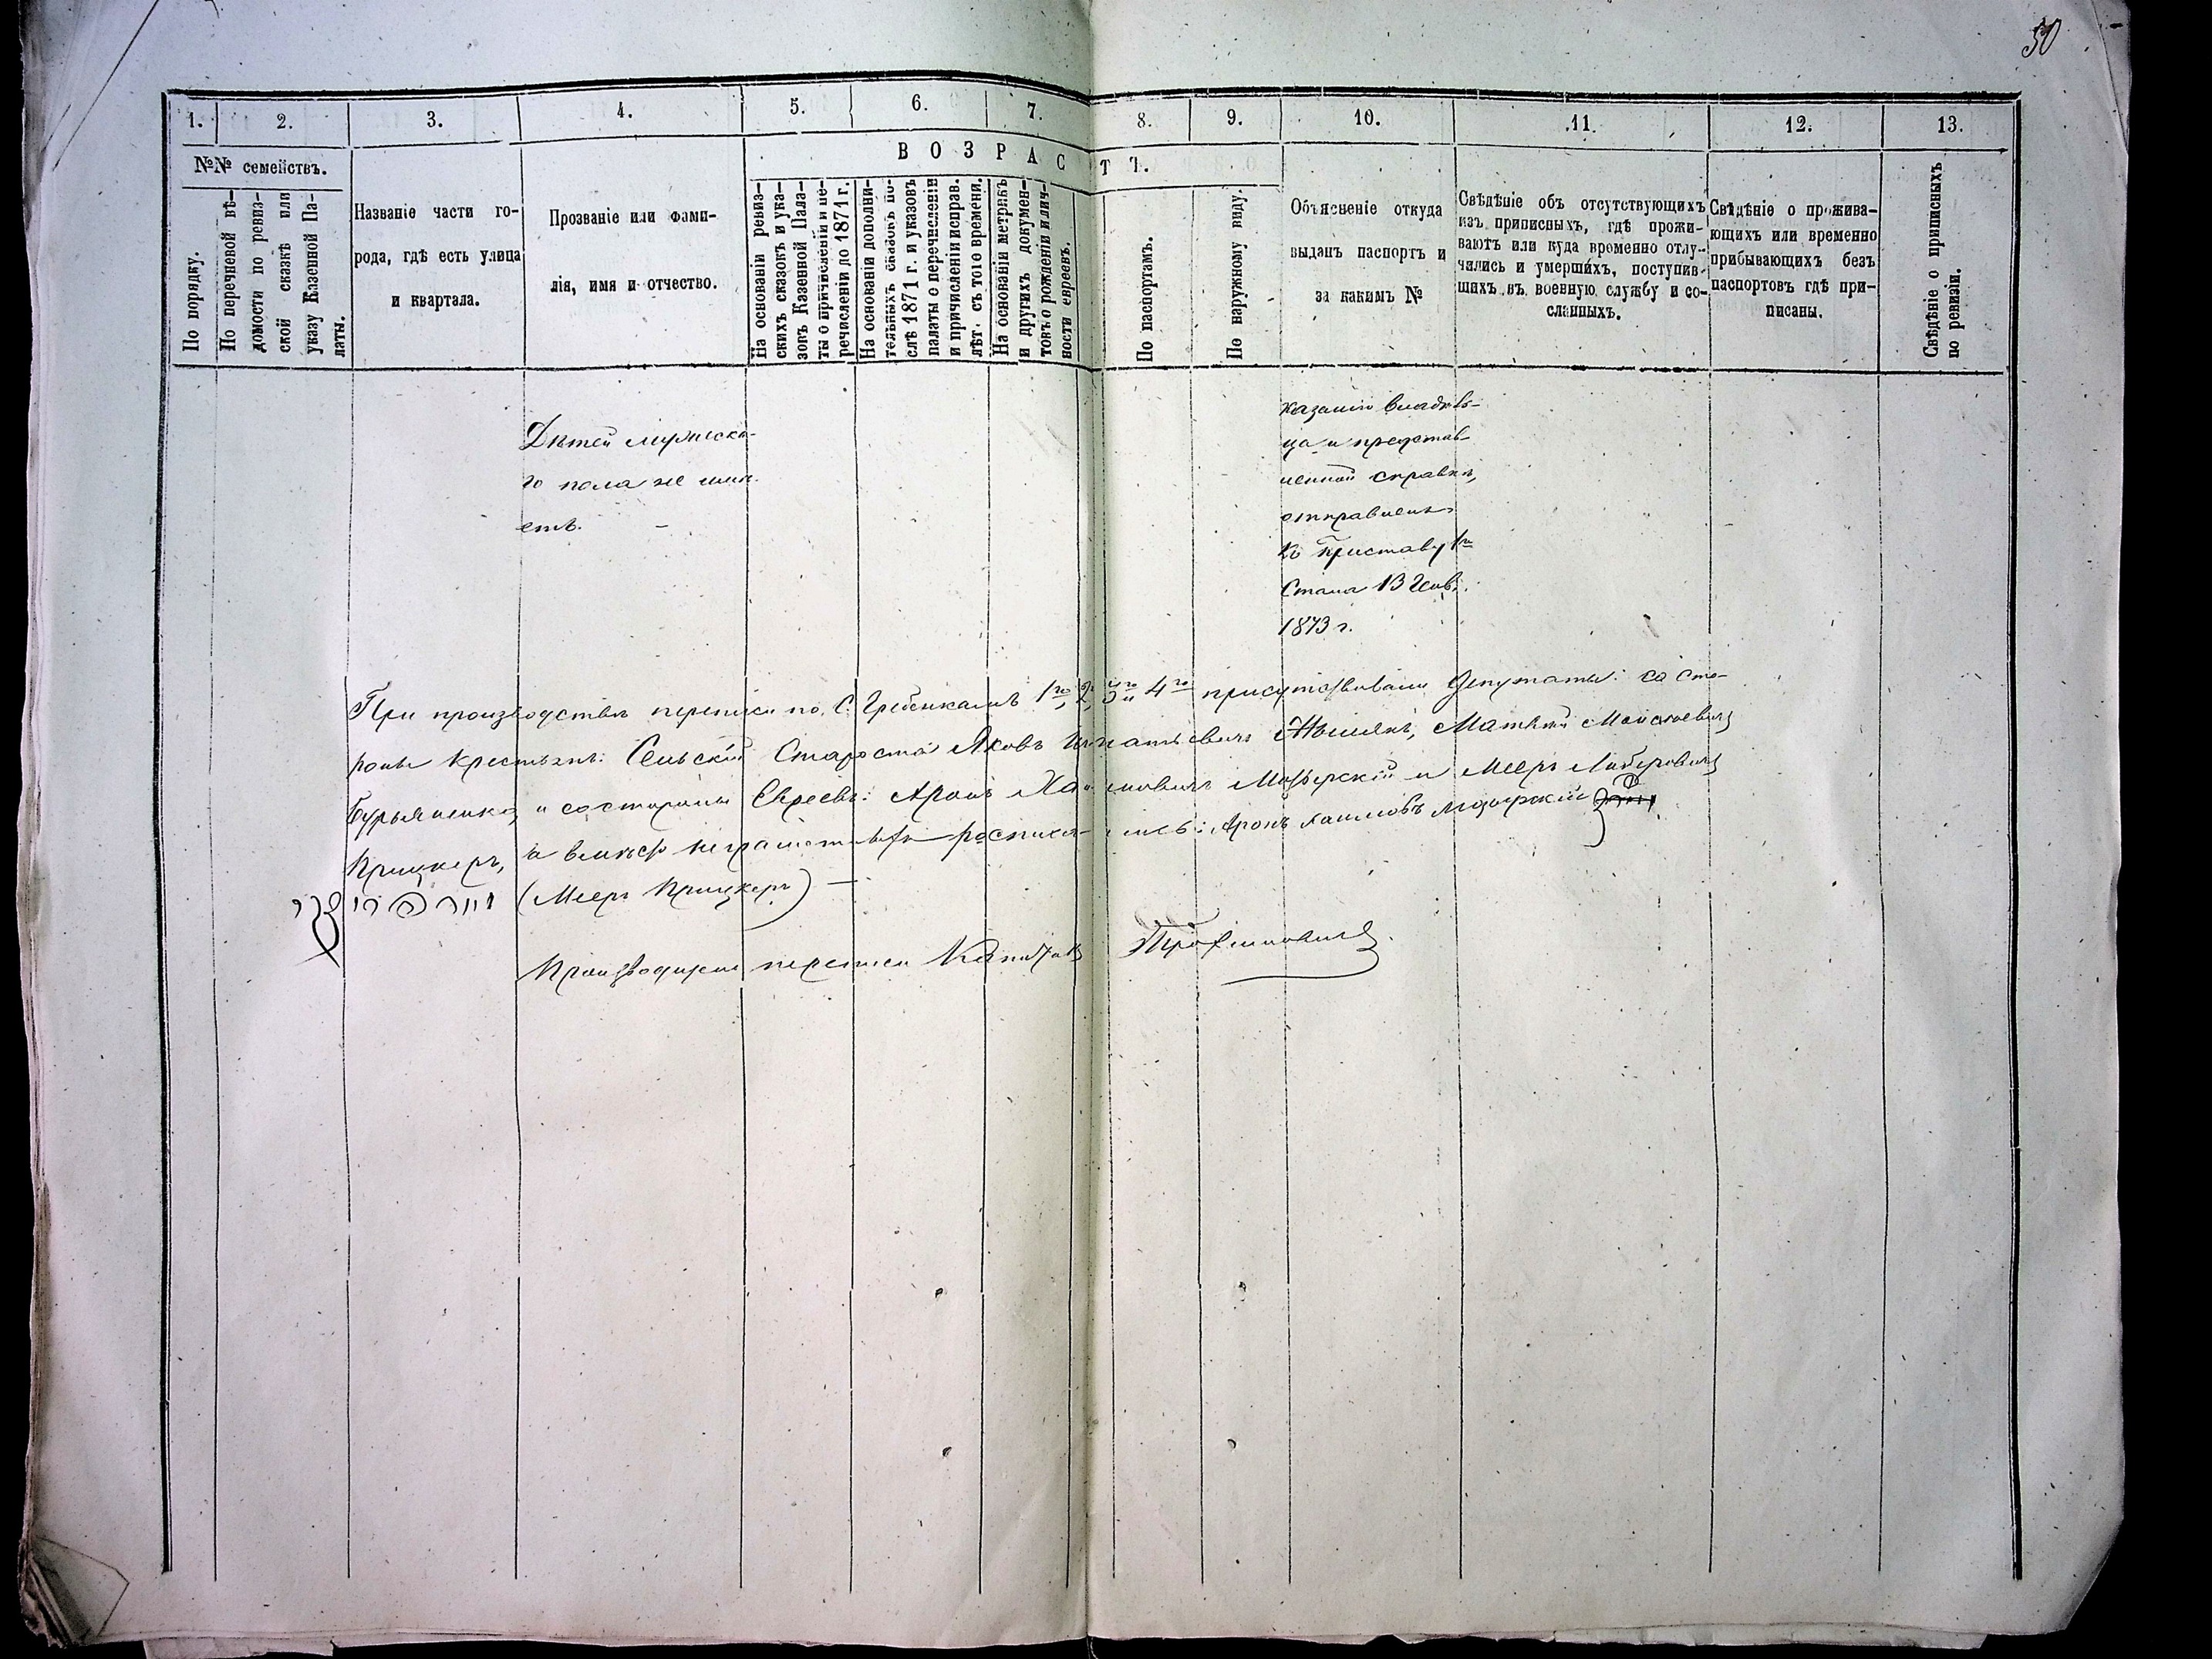 50
1. 2. 3. 4. 5. 6. 7. 8. 9. 10. 11. 12. 13.
№№ семействъ.
ВОЗРАСТ Т.
По порядку.
По перечневой вѣ-
домости по ревиз-
ской сказкѣ или
указу Казенной Па-
латы.
Названіе части го-
рода, гдѣ есть улица
и квартала.
Прозваніе или фами-
лія, имя и отчество.
На основаніи ревиз-
скихъ сказокъ и ука-
зовъ Казенной Пала-
ты о причисленіи и пе-
речисленіи до 1871 г.
На основаніи дополни-
тельныхъ сказокъ по-
слѣ 1871 г. и указовъ
палаты о перечисленіи
и причисленіи исправ.
лѣт. съ того времени.
На основаніи метрикъ
и другихъ докумен-
товъ о рожденіи и лич-
ности евреевъ.
По паспортамъ.
По наружному виду.
Объясненіе откуда
выданъ паспортъ и
за какимъ №
Свѣдѣніе объ отсутствующихъ
изъ приписныхъ, гдѣ прожи-
ваютъ или куда временно отлу-
чились и умершихъ, поступив-
шихъ въ военную службу и со-
сланныхъ.
Свѣдѣніе о прожива-
ющихъ или временно
прибывающихъ безъ
паспортовъ гдѣ при-
писаны.
Свѣдѣніе о приписныхъ
по ревизіи.
Дѣтей мужеска-
го пола не имѣ-
етъ. —
казанію владѣль-
ца и представ-
ленной справки,
отправленъ
къ Приставу 1го
Стана 13 Генв.
1873 г.
При производствѣ переписи по С. Гребенкамъ 1го, 2, 3 и 4го присутствовали Депутаты: со сто-
роны крестьянъ: Сельскій Староста Яковъ Игнатьевичъ Матвѣй Моисѣевичъ
и со стороны Евреевъ: Аронъ Хаимовичъ и Мееръ Либеровичъ
Прицкеръ, а вмѣсто росписались: Аронъ Хаимовъ
(Мееръ Прицкеръ) —
Производившій переписи Капитанъ Трофимовичъ.